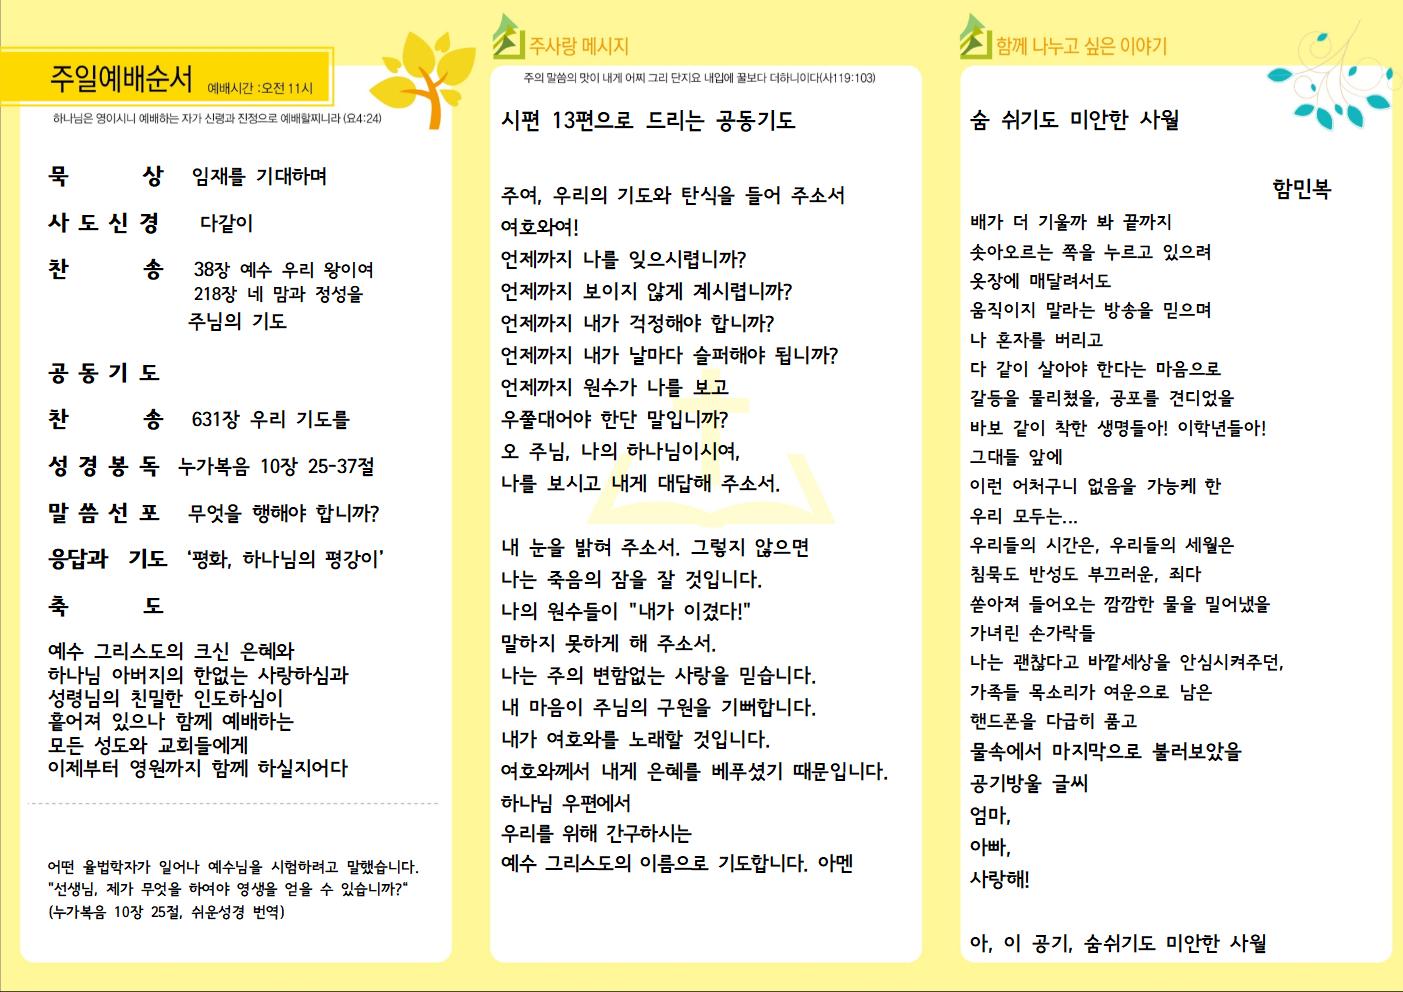 주일예배순서 예배시간 :오전 11시
하나님은 영이시니 예배하는 자가 신령과 진정으로 예배할찌니라 (요4:24)
묵 상 임재를 기대하며
사 도 신 경 다같이
찬 송 38장 예수 우리 왕이여
218장 네 맘과 정성을
주님의 기도
공 동 기 도
찬 송 631장 우리 기도를
성 경 봉 독 누가복음 10장 25-37절
말 씀 선 포 무엇을 행해야 합니까?
응답과 기도 ‘평화, 하나님의 평강이’
축 도
예수 그리스도의 크신 은혜와
하나님 아버지의 한없는 사랑하심과
성령님의 친밀한 인도하심이
흩어져 있으나 함께 예배하는
모든 성도와 교회들에게
이제부터 영원까지 함께 하실지어다
어떤 율법학자가 일어나 예수님을 시험하려고 말했습니다.
"선생님, 제가 무엇을 하여야 영생을 얻을 수 있습니까?“
(누가복음 10장 25절, 쉬운성경 번역)
주사랑 메시지
주의 말씀의 맛이 내게 어찌 그리 단지요 내입에 꿀보다 더하니이다(사119:103)
시편 13편으로 드리는 공동기도
주여, 우리의 기도와 탄식을 들어 주소서
여호와여!
언제까지 나를 잊으시렵니까?
언제까지 보이지 않게 계시렵니까?
언제까지 내가 걱정해야 합니까?
언제까지 내가 날마다 슬퍼해야 됩니까?
언제까지 원수가 나를 보고
우쭐대어야 한단 말입니까?
오 주님, 나의 하나님이시여,
나를 보시고 내게 대답해 주소서.
내 눈을 밝혀 주소서. 그렇지 않으면
나는 죽음의 잠을 잘 것입니다.
나의 원수들이 "내가 이겼다!"
말하지 못하게 해 주소서.
나는 주의 변함없는 사랑을 믿습니다.
내 마음이 주님의 구원을 기뻐합니다.
내가 여호와를 노래할 것입니다.
여호와께서 내게 은혜를 베푸셨기 때문입니다.
하나님 우편에서
우리를 위해 간구하시는
예수 그리스도의 이름으로 기도합니다. 아멘
함께 나누고 싶은 이야기
숨 쉬기도 미안한 사월
함민복
배가 더 기울까 봐 끝까지
솟아오르는 쪽을 누르고 있으려
옷장에 매달려서도
움직이지 말라는 방송을 믿으며
나 혼자를 버리고
다 같이 살아야 한다는 마음으로
갈등을 물리쳤을, 공포를 견디었을
바보 같이 착한 생명들아! 이학년들아!
그대들 앞에
이런 어처구니 없음을 가능케 한
우리 모두는...
우리들의 시간은, 우리들의 세월은
침묵도 반성도 부끄러운, 죄다
쏟아져 들어오는 깜깜한 물을 밀어냈을
가녀린 손가락들
나는 괜찮다고 바깥세상을 안심시켜주던,
가족들 목소리가 여운으로 남은
핸드폰을 다급히 품고
물속에서 마지막으로 불러보았을
공기방울 글씨
엄마,
아빠,
사랑해!
아, 이 공기, 숨쉬기도 미안한 사월